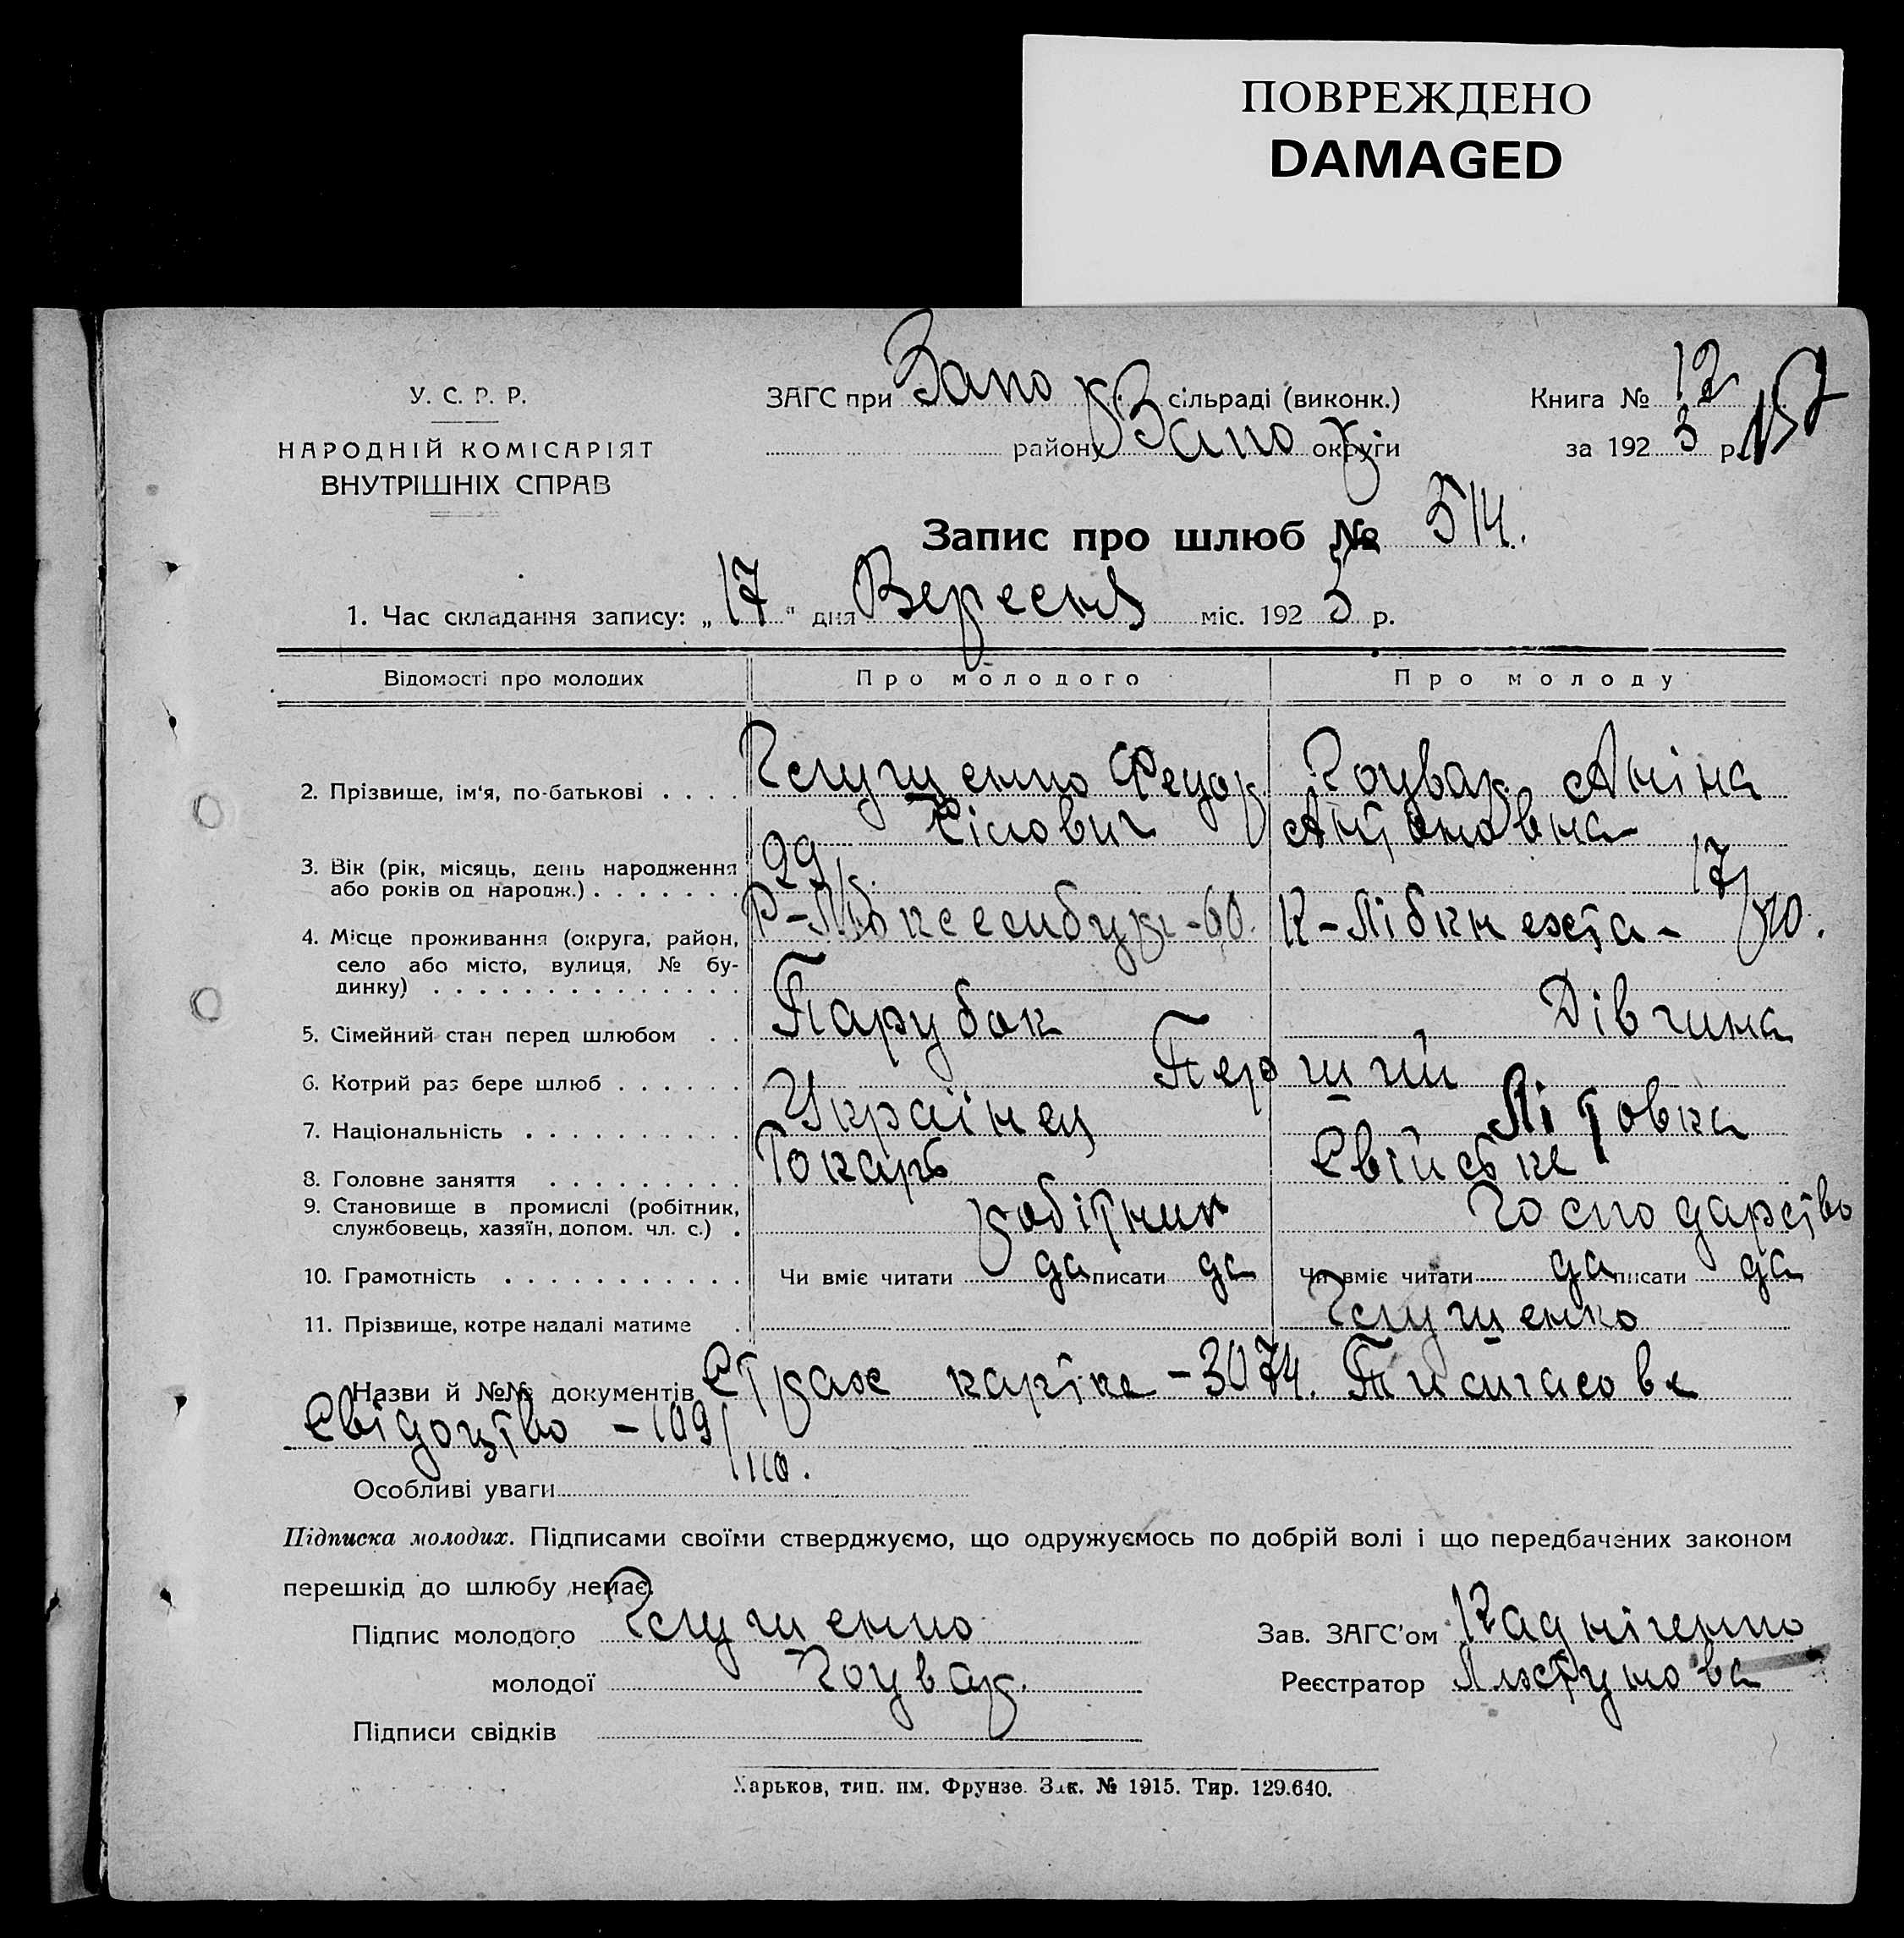 ПОВРЕЖДЕНО
DAMAGED
У. С. Р. Р.
НАРОДНІЙ КОМІСАРІЯТ
ВНУТРІШНІХ СПРАВ
ЗАГС при Запо сільраді (виконк.)
району Запо округи
Книга № 12
за 192 5 р.
Запис про шлюб № 514.
1. Час складання запису: „17" дня Вересня міс. 192 5 р.
Відомості про молодих Про молодого Про молоду
2. Прізвище, ім'я, по-батькові . . . . Глущенко Федор Гоувар Аніна
Сілович Антоновна
3. Вік (рік, місяць, день народження
або років од народж.) . . . . . . . 29 17
4. Місце проживання (округа, район, Р-Люксембург-60. К-Лібкнехта-
село або місто, вулиця, № бу-
динку) . . . . . . . . . . . . . .
5. Сімейний стан перед шлюбом . . Парубок Дівчина
6. Котрий раз бере шлюб . . . . . . Перший
7. Національність . . . . . . . . . . Українец Літовка
8. Головне заняття . . . . . . . . . Токарь Свійське
9. Становище в промислі (робітник,
службовець, хазяїн, допом. чл. с.) . робітник Господарство
10. Грамотність . . . . . . . . . . . Чи вміє читати да писати да Чи вміє читати да писати да
11. Прізвище, котре надалі матиме . Глущенко
Назви й №№ документів Страх картка -3074. Тимчасове
Свідоцтво -109/110.
Особливі уваги
Підписка молодих. Підписами своїми стверджуємо, що одружуємось по добрій волі і що передбачених законом
перешкід до шлюбу немає.
Підпис молодого Глущенко Зав. ЗАГС'ом
молодої Гоувар. Реєстратор
Підписи свідків
Харьков, тип. им. Фрунзе. Зак. № 1915. Тир. 129.640.